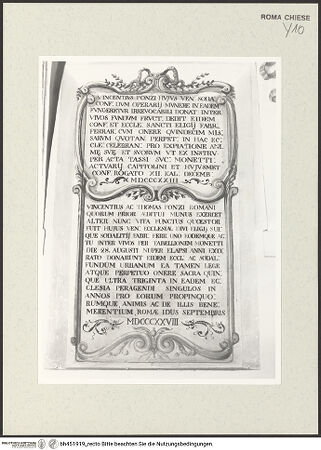 ROMA CHIESE
Y10
VINCENTIUS PONZI HUJUS VEN. SODA.
CONF. DUM OPERARIJ MUNERE IN EADEM
FUNGERETUR IRREVOCABILI DONAT. INTER
VIVOS FUNDUM FRUCT. DEDIT EIDEM
CONF. ET ECCLE. SANCTI ELIGIJ FABR.
FERRAR. CUM ONERE QUINDECIM MIS.
SARUM QUOTAN. PERPET. IN HAC EC.
CLE. CELEBRAN. PRO EXPIATIONE ANI.
MÆ SUÆ ET SUORUM UT EX INSTRU.
PER ACTA TASSI SUC. MONETTI.
ACTUARIJ CAPITOLINI ET HUJUSMET
CONF. ROGATO XII. KAL. DECEMB.
MDCCCXXIII
VINCENTIUS AC THOMAS PONZI ROMANI
QUORUM PRIOR ÆDITUI MUNUS EXERCET
ALTER NUNC VITA FUNCTUS QUÆSTOR
FUIT HUJUS VEN. ECCLESIÆ DIVI ELIGIJ SUÆ
QUE SODALITIJ FABR. FERR. UNO EODEMQUE AC.
TU INTER VIVOS PER TABELLIONEM MONETTI
DIE 28. AUGUSTI NUPER ELAPSI ANNI EXTE
RATO DONARUNT EIDEM ECCL. AC SODAL.
FUNDUM URBANUM EA TAMEN LEGE
ATQUE PERPETUO ONERE SACRA QUIN.
QUE ULTRA TRIGINTA IN EADEM EC.
CLESIA PERAGENDI SINGULOS IN
ANNOS PRO EORUM PROPINQUO
RUMQUE ANIMIS AC DE ILLIS BENE.
MERENTIUM ROMÆ IDUS SEPTEMBRIS
MDCCCXXVIII
bh451919_recto Bitte beachten Sie die Nutzungsbedingungen.